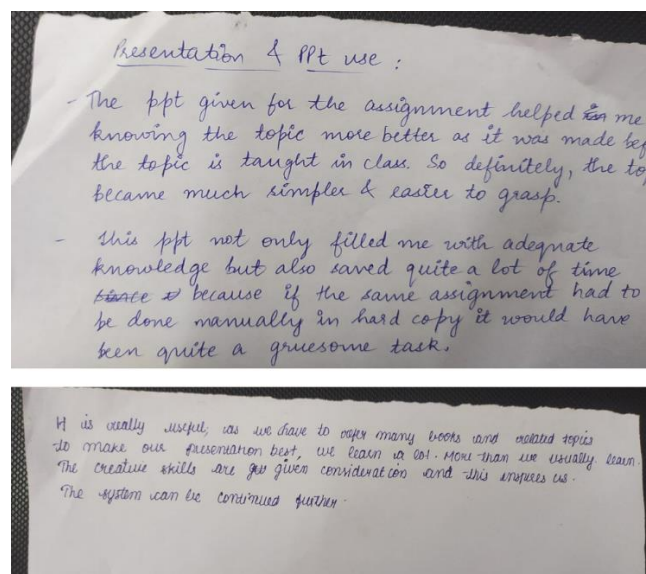 Presentation & PPt use :
- The ppt given for the assignment helped me
knowing the topic more better as it was made bef
the topic is taught in class. So definitely, the to
became much simpler & easier to grasp.
- This ppt not only filled me with adequate
knowledge but also saved quite a lot of time
because if the same assignment had to
be done manually in hard copy it would have
been quite a gruesome task.
It is really useful, as we have to refer many books and related topics
to make our presentation best, we learn a lot. More than we usually learn.
The creative skills are given consideration and this inspires us.
The system can be continued further.